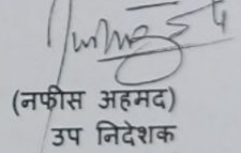 (नफीस अहमद)
उप निदेशक